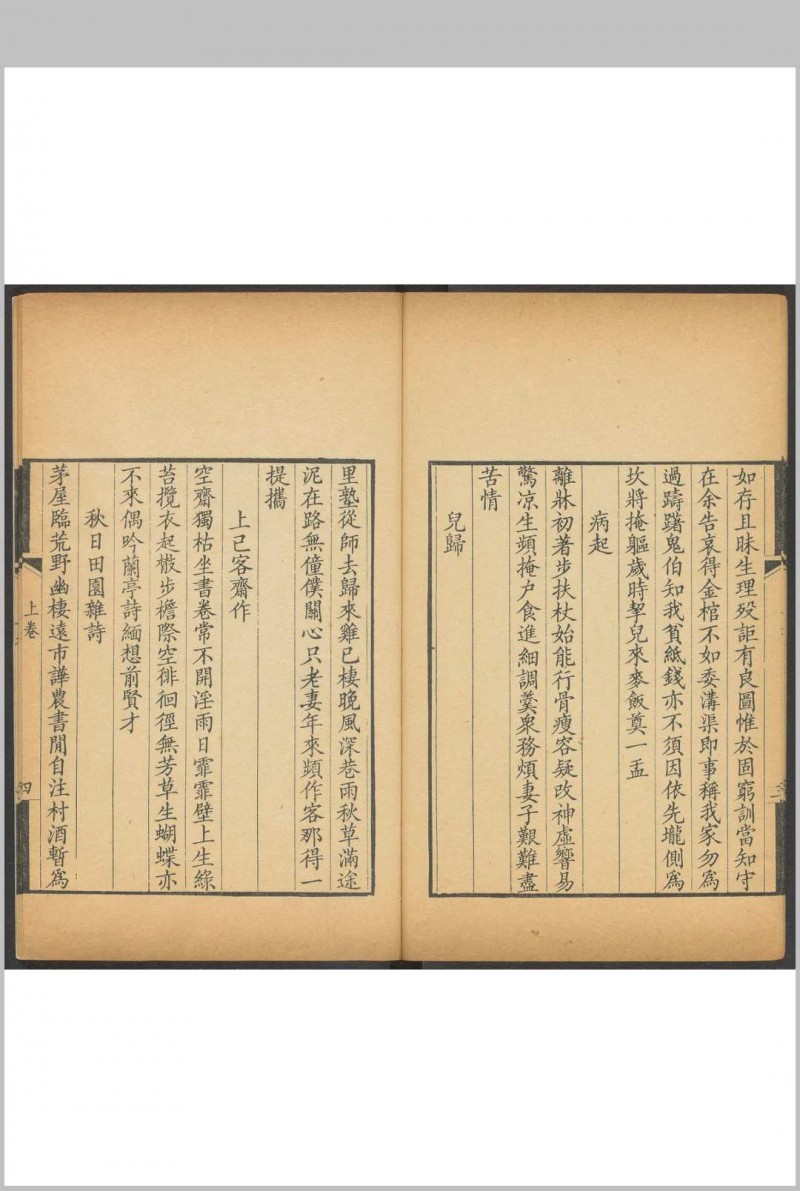 如存且昧生理歿詎有良圖惟於固窮訓當知守
在余告哀得金棺不如委溝渠即事稱我家勿為
過躊躇鬼伯知我貧紙錢亦不須因依先壠側為
坎將掩軀歲時挈兒來麥飯奠一盂
病起
離牀初著步扶杖始能行骨瘦容疑改神虛響易
驚凉生頻掩户食進細調羹衆務煩妻子艱難盡
苦情
兒歸
里塾從師去歸來雞已棲晚風深巷雨秋草滿途
泥在路無僮僕關心只老妻年來頻作客那得一
提攜
上已客齋作
空齋獨枯坐書卷常不開淫雨日霏霏壁上生綠
苔攬衣起散步檐際空徘徊徑無芳草生蝴蝶亦
不來偶吟蘭亭詩緬想前賢才
秋日田園雜詩
茅屋臨荒野幽棲遠市譁農書閒自注村酒暫為
上卷
四